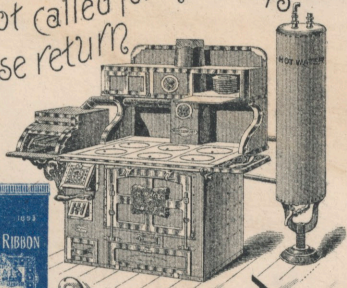 ot called for
se return
HOT WATER
RIBBON